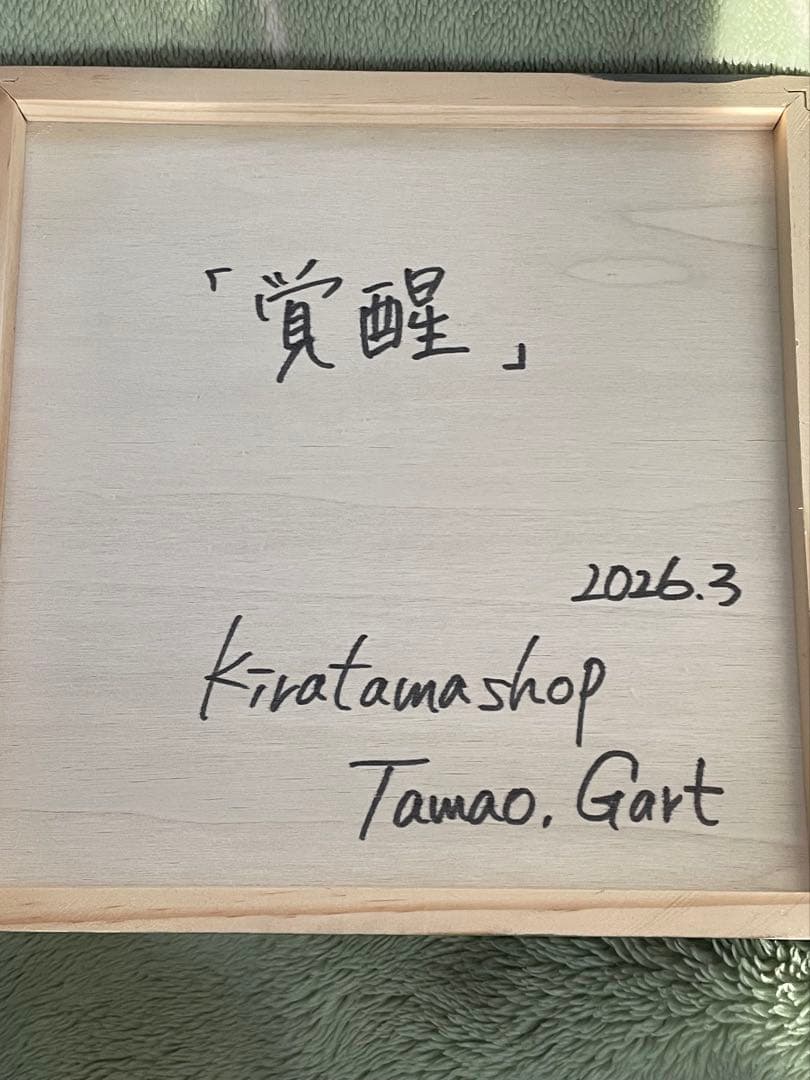 「覚醒」
2026.3
Kiratamashop
Tamao. Gart